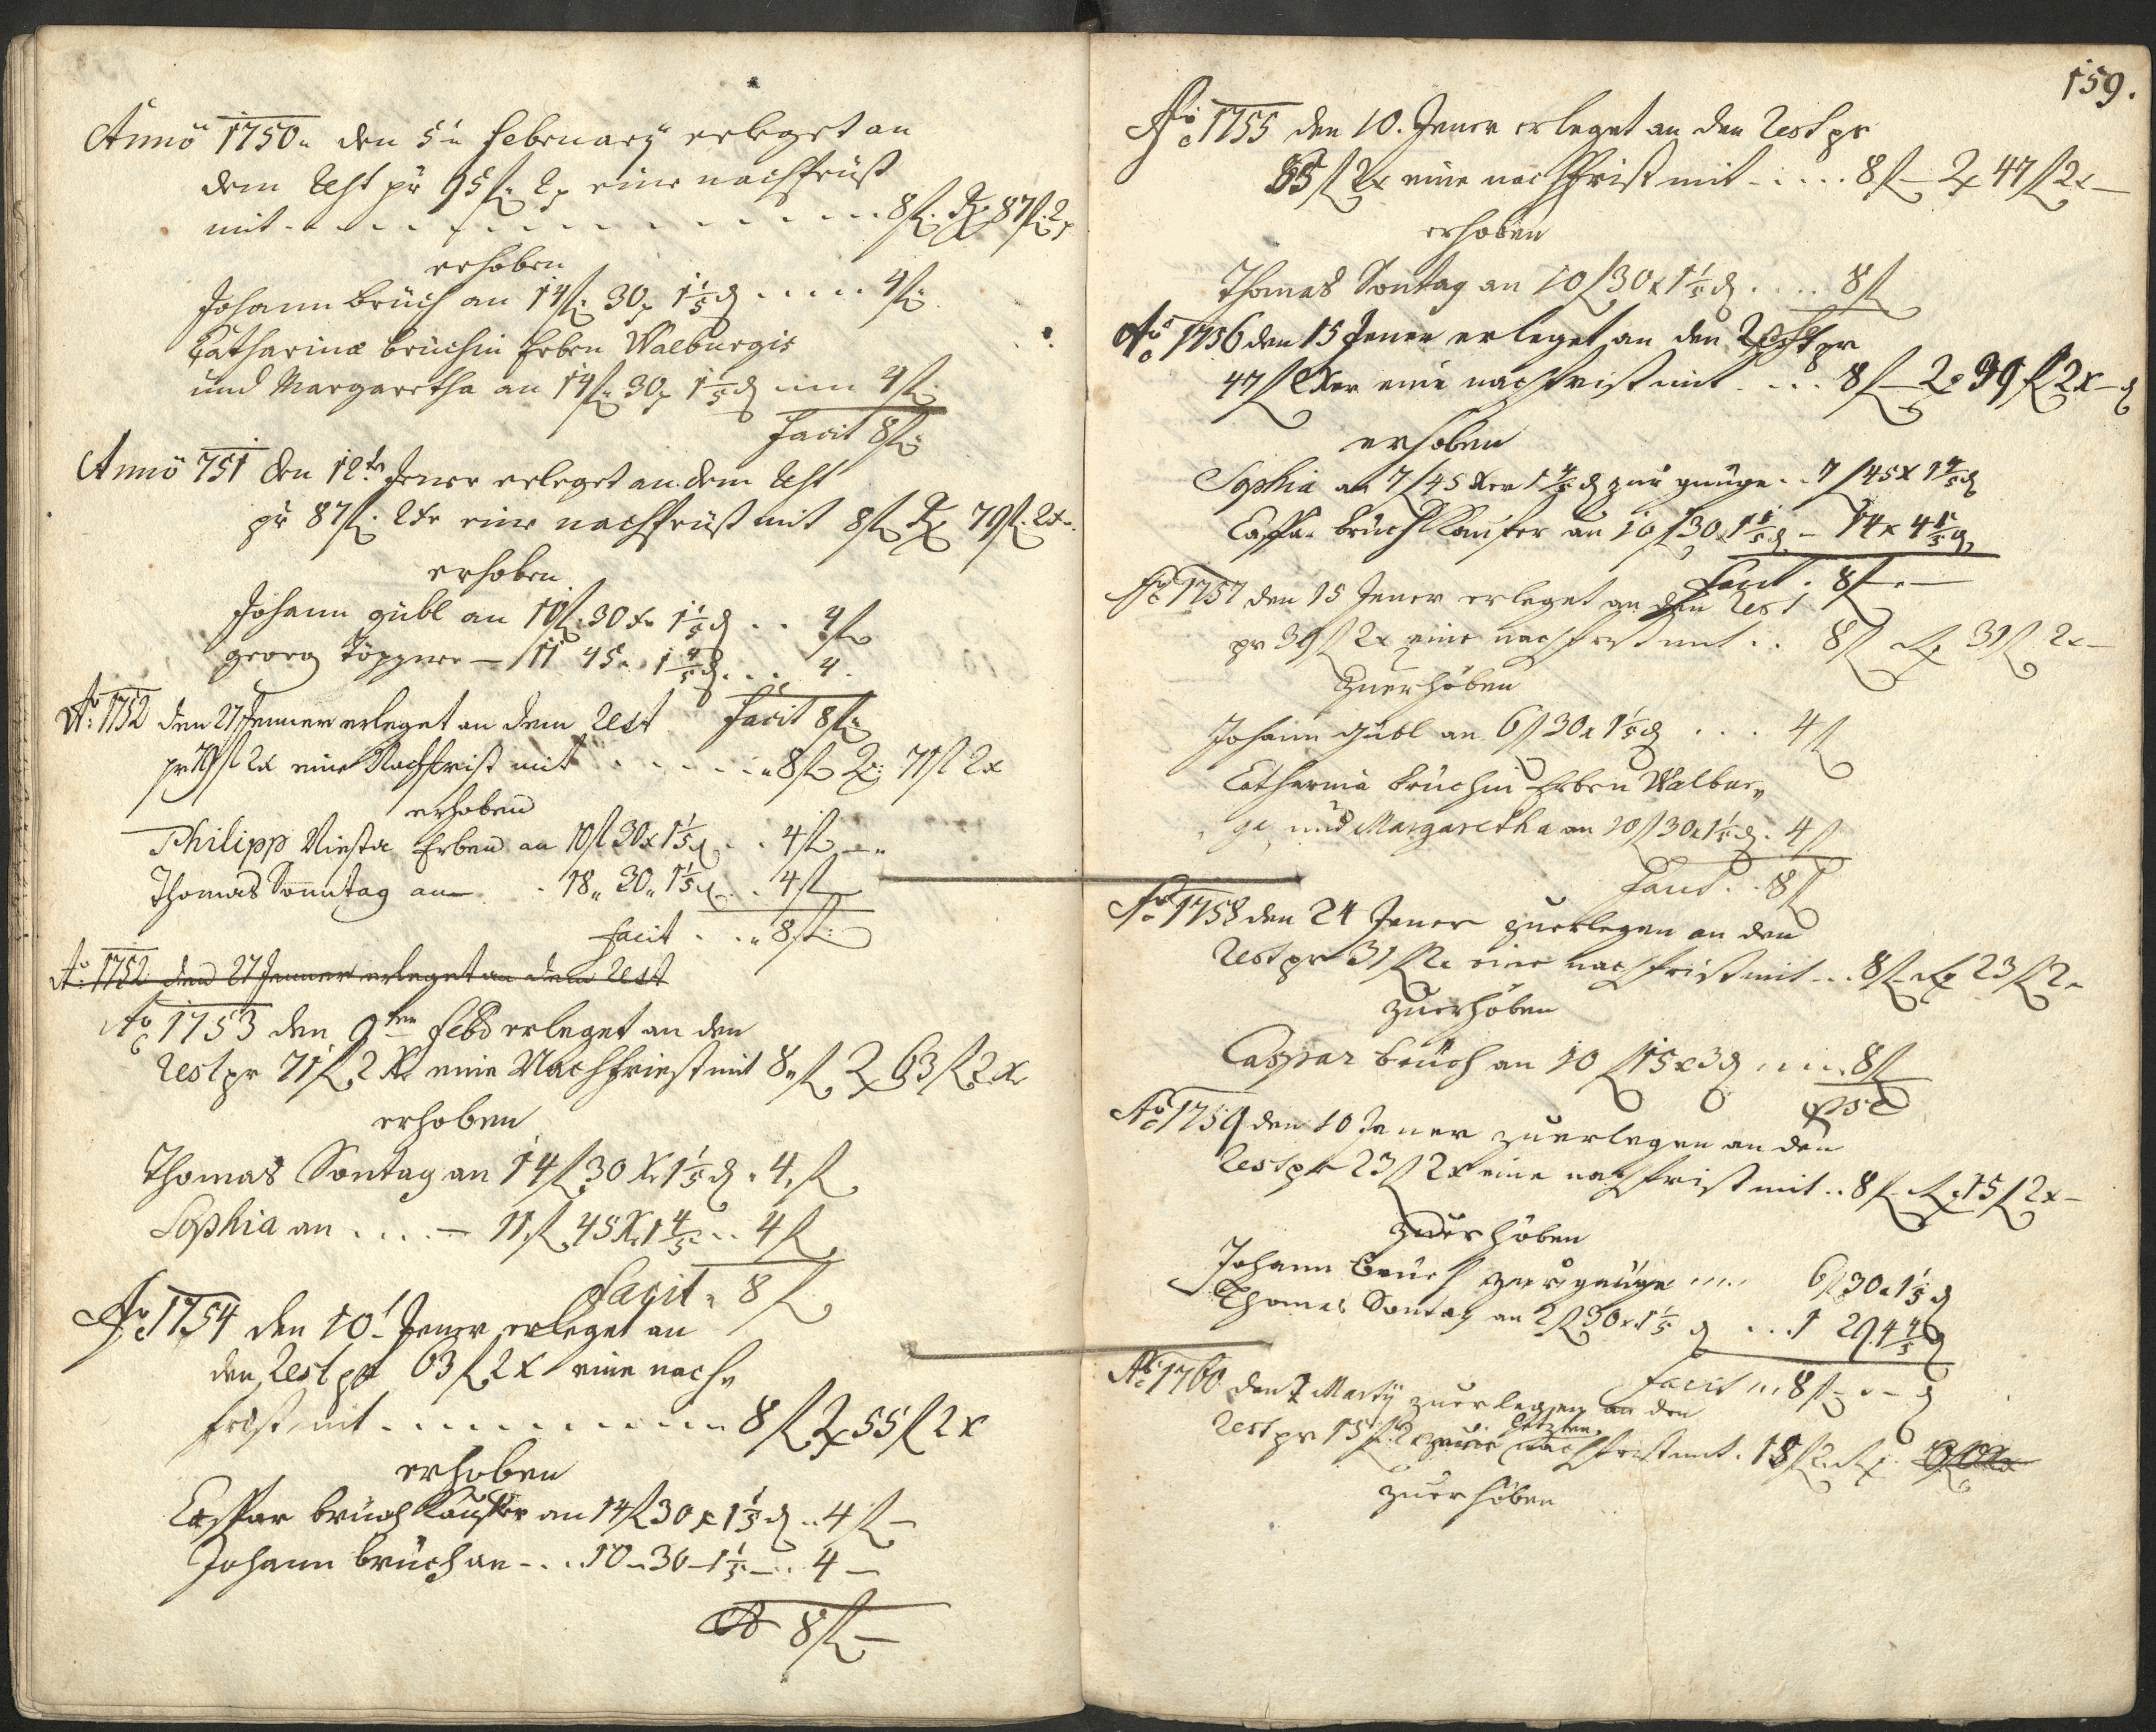 Anno 1750. den 5ten February erleget an
dem Rest pr 95 fl. 2 x eine nachfrüst
mit - - - - - - - - - 8 fl. R: 87 fl. 2 x
erhoben
Johann brüch an 14 fl. 30 x 1 1/5 d ..... 4 fl.
Catharina brüchin Erben Walburgis
und Margaretha an 14 fl. 30 x 1 1/5 d 4 fl.
Facit 8 fl.
Anno 751 den 12ten Jener erleget an dem Rest
pr 87 fl. 2 xr eine nachfrüst mit 8 fl R: 79 fl. 2 xr.
erhoben
Johann gübl an 10 fl. 30 xr 1 1/5 d .. 4 fl
georg Töpper — 11 45 .. 1 4/5 d ... 4.
Facit 8 fl.
Ao: 1752 den 27 Jenner erleget an dem Rest
pr 79 fl 2 x eine Nachfrist mit . . . . . . 8 fl R: 71 fl 2 x
erhoben
Philipp Niesta Erben an 10 fl 30 x 1 1/5 d . . 4 fl —
Thomas Sonntag an . 18 „ 30 „ 1 1/5 d . . 4 fl
Facit . . „ 8 fl:
Ao: 1752 den 27 Jenner erleget an dem Rest
Ao 1753 den 9ten Feb: erleget an den
Rest pr 71 fl 2 xr eine Nachfriest mit 8 fl R 63 fl 2 x
erhoben
Thomas Sontag an 14 fl 30 x 1 1/5 d . 4 fl
Sophia an .... — 11 fl 45 x 1 4/5 .. 4 fl
Facit „ 8 fl
Ao 1754 den 10t Jener erleget an
den Rest pr 63 fl 2 x eine nach„
frist mit - - - - - - - - 8 fl R 55 fl 2 x
erhoben
Casspar brüch Kauffer an 14 fl 30 x 1 1/5 d .. 4 fl —
Johann brüch an - . . 10 — 30 — 1 1/5 — . . 4 —
8 fl —
159.
Ao 1755 den 10. Jener erleget an den Rest pr
55 fl 2 x eine nachfrist mit - . . . . 8 fl — R 47 fl 2 x —
erhoben
Thomas Sontag an 10 fl 30 x 1 1/5 d . . . . 8 fl
Ao 1756 den 15 Jener erleget an den Rest pr
47 fl 2 xr eine nachfrist mit . . . 8 fl — R 39 fl 2 x — d
erhoben
Sophia an 7 fl 45 xr 1 4/5 d zur gnüge . . 7 fl 45 x 1 4/5 d
Caspar brüch Kauffer an 10 fl 30 x 1 1/5 d — 14 x 4 1/5 d
Facit . 8 fl — . —
Ao 1757 den 15 Jener erleget an den Rest
pr 39 fl 2 x eine nachfrist mit . . 8 fl R 31 fl 2 x —
zuerhöben
Johann gübl an 6 fl 30 x 1 1/5 d . . . 4 fl
Catharina brüchin Erben Walbur„
ge und Margaretha an 10 fl 30 x 1 1/5 d . 4 fl
Facit . . 8 fl
Ao 1758 den 24 Jener zuerlegen an den
Rest pr 31 fl 2 x eine nachfrist mit . . 8 fl R 23 fl 2 x
zuerhöben
Caspar brüch an 10 fl 15 x 3 d . . . . 8 fl
Ao 1759 den 10 Jener zuerlegen an den
Rest pr 23 fl 2 x eine nachfrist mit . . 8 fl R 15 fl 2 x —
zuerhöben
Johann Brüch zur gnüge . . . . 6 fl 30 x 1 1/5 d
Thomas Sontag an 2 fl 30 x 1 1/5 d . . . 1 29 4 4/5 d
Facit . . . 8 fl — . — d
Ao 1760 den 7 Marty zuerlegen an den
letzten
Rest pr 15 fl 2 x nachfrist mit . 15 fl 2 R
zuerhöben